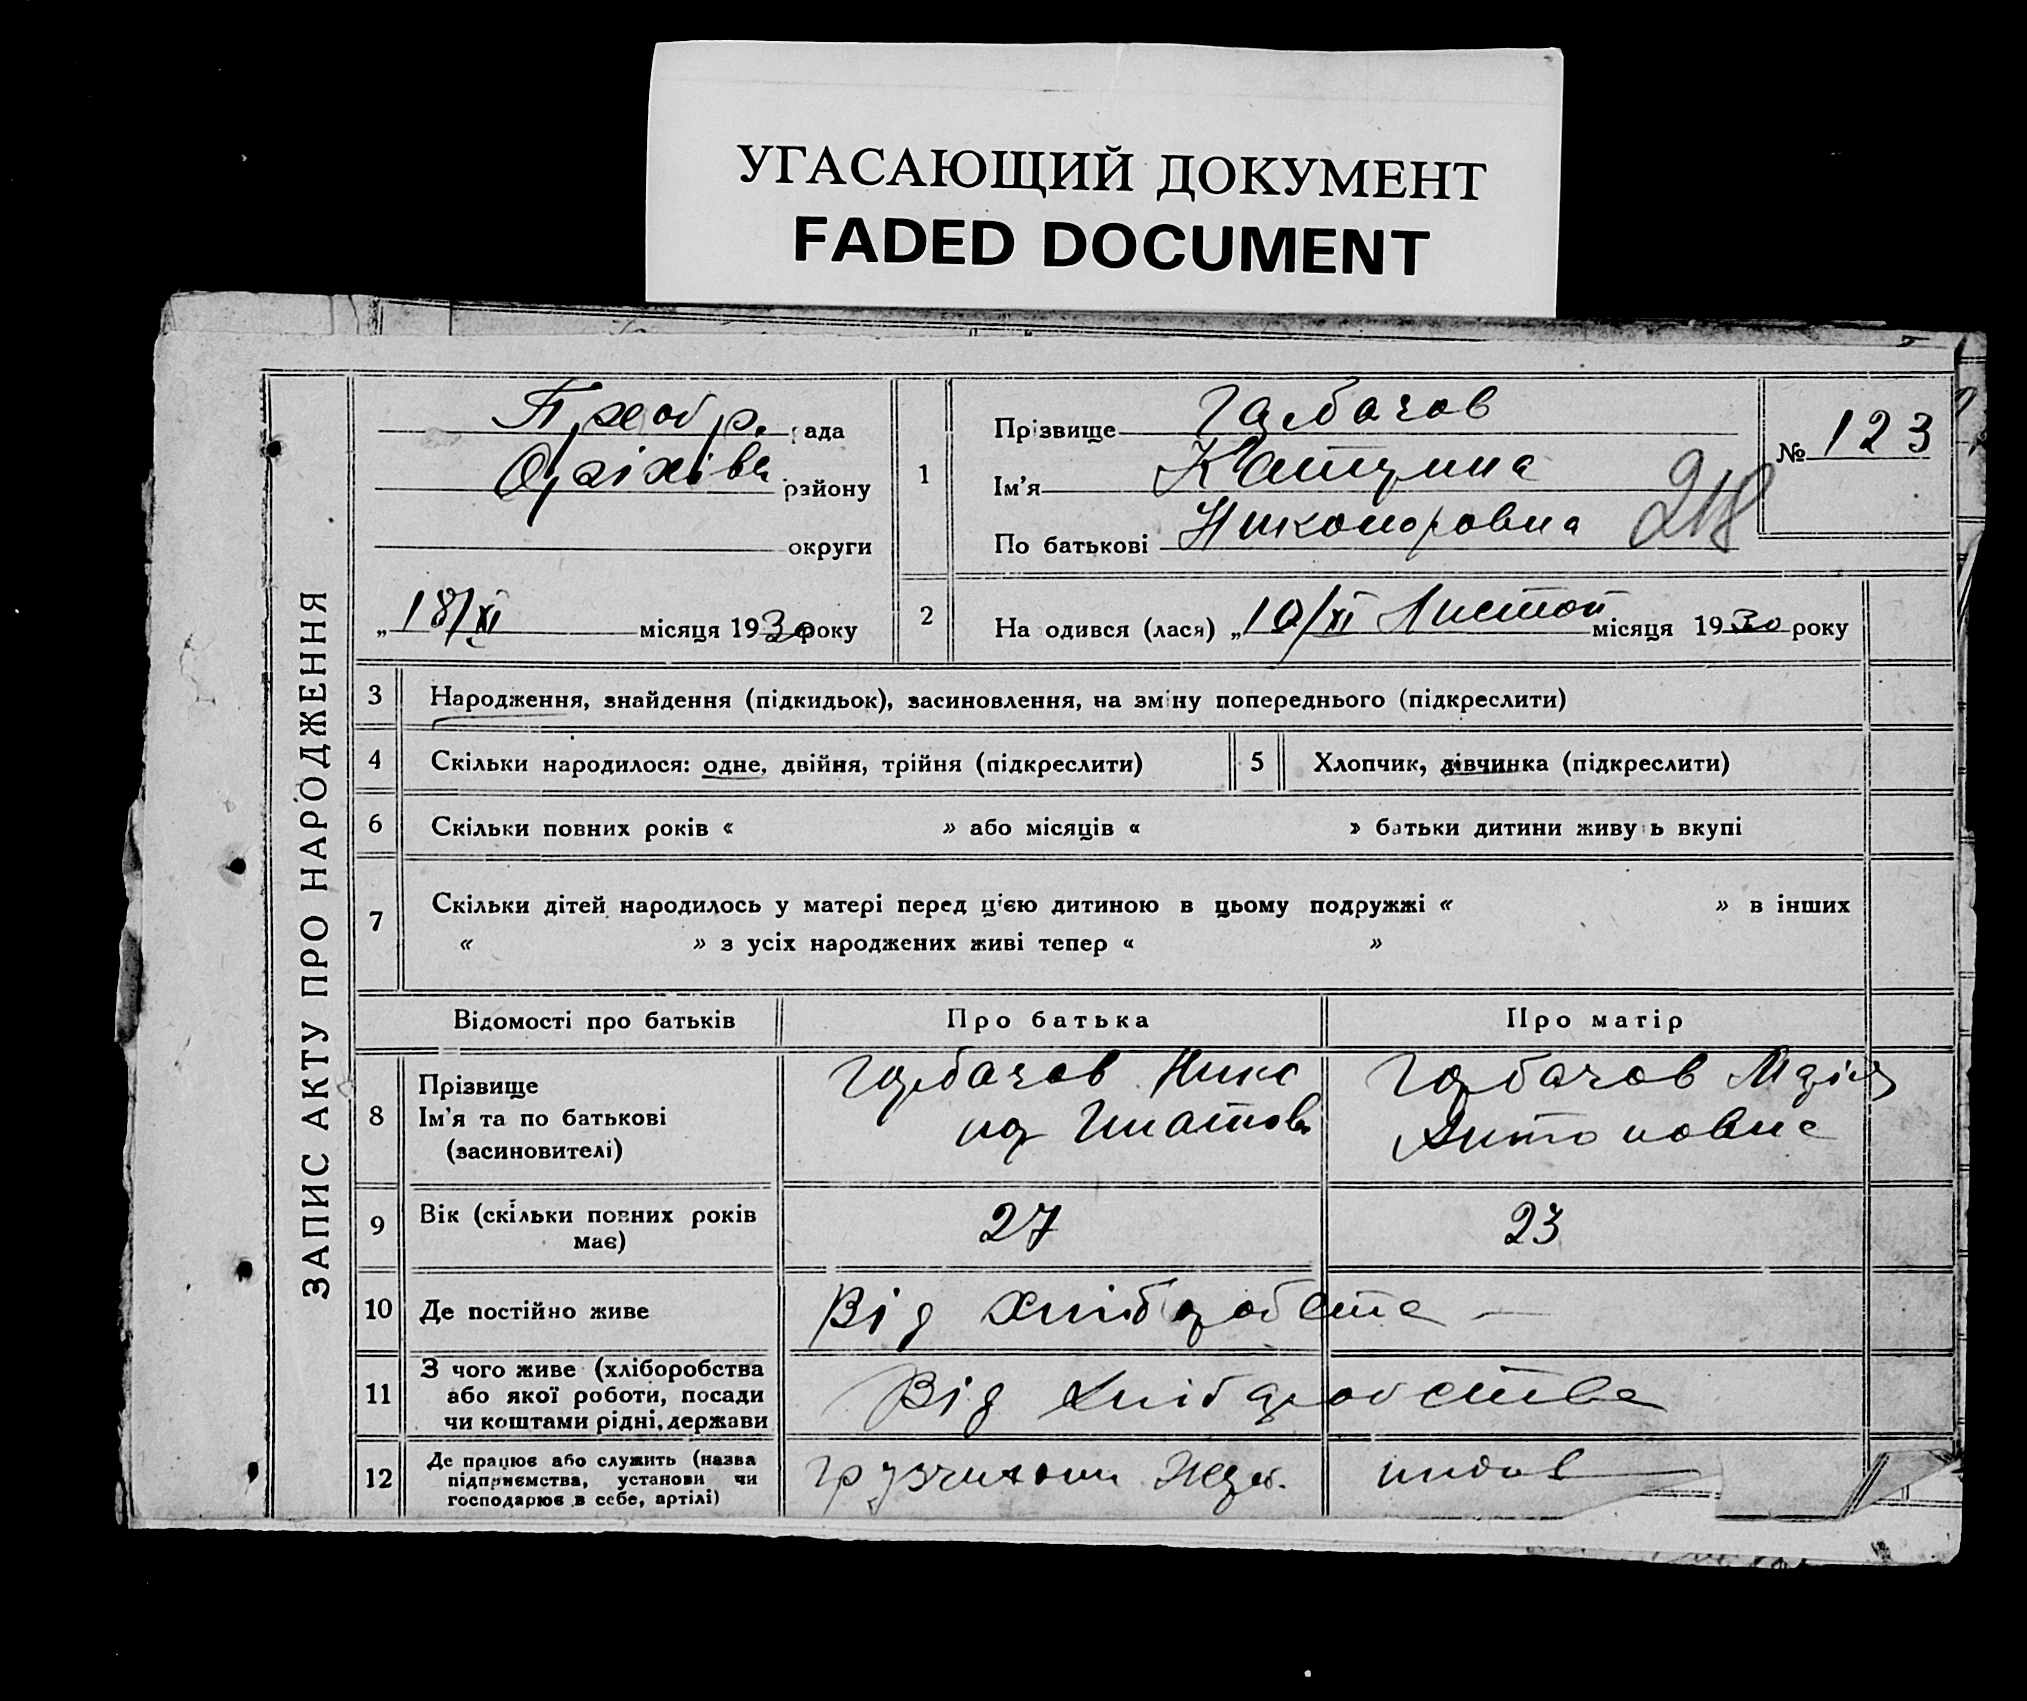 УГАСАЮЩИЙ ДОКУМЕНТ
FADED DOCUMENT
ЗАПИС АКТУ ПРО НАРОДЖЕННЯ
Преобр. рада
Оріхівс району
округи
„ 18/XI місяця 1930 року
1
Прізвище Гарбачов
Ім'я Катерина
По батькові Никоноровна
№ 123
218
2 На одився (лася) „ 10/XI Листоп місяця 1930 року
3 Народження, знайдення (підкидьок), засиновлення, на зміну попереднього (підкреслити)
4 Скільки народилося: одне, двійня, трійня (підкреслити)
5 Хлопчик, дівчинка (підкреслити)
6 Скільки повних років « » або місяців « » батьки дитини живуть вкупі
7 Скільки дітей народилось у матері перед цією дитиною в цьому подружжі « » в інших
« » з усіх народжених живі тепер « »
Відомості про батьків Про батька Про матір
8 Прізвище
Ім'я та по батькові
(засиновителі)
Гарбачов Нико
нор Игнатов
Гарбачов Марія
Антоновна
9 Вік (скільки повних років
має)
27 23
10 Де постійно живе
Від
11 З чого живе (хліборобства
або якої роботи, посади
чи коштами рідні, держави
Від
12 Де працює або служить (назва
підприємства, установи чи
господарює в себе, артілі)